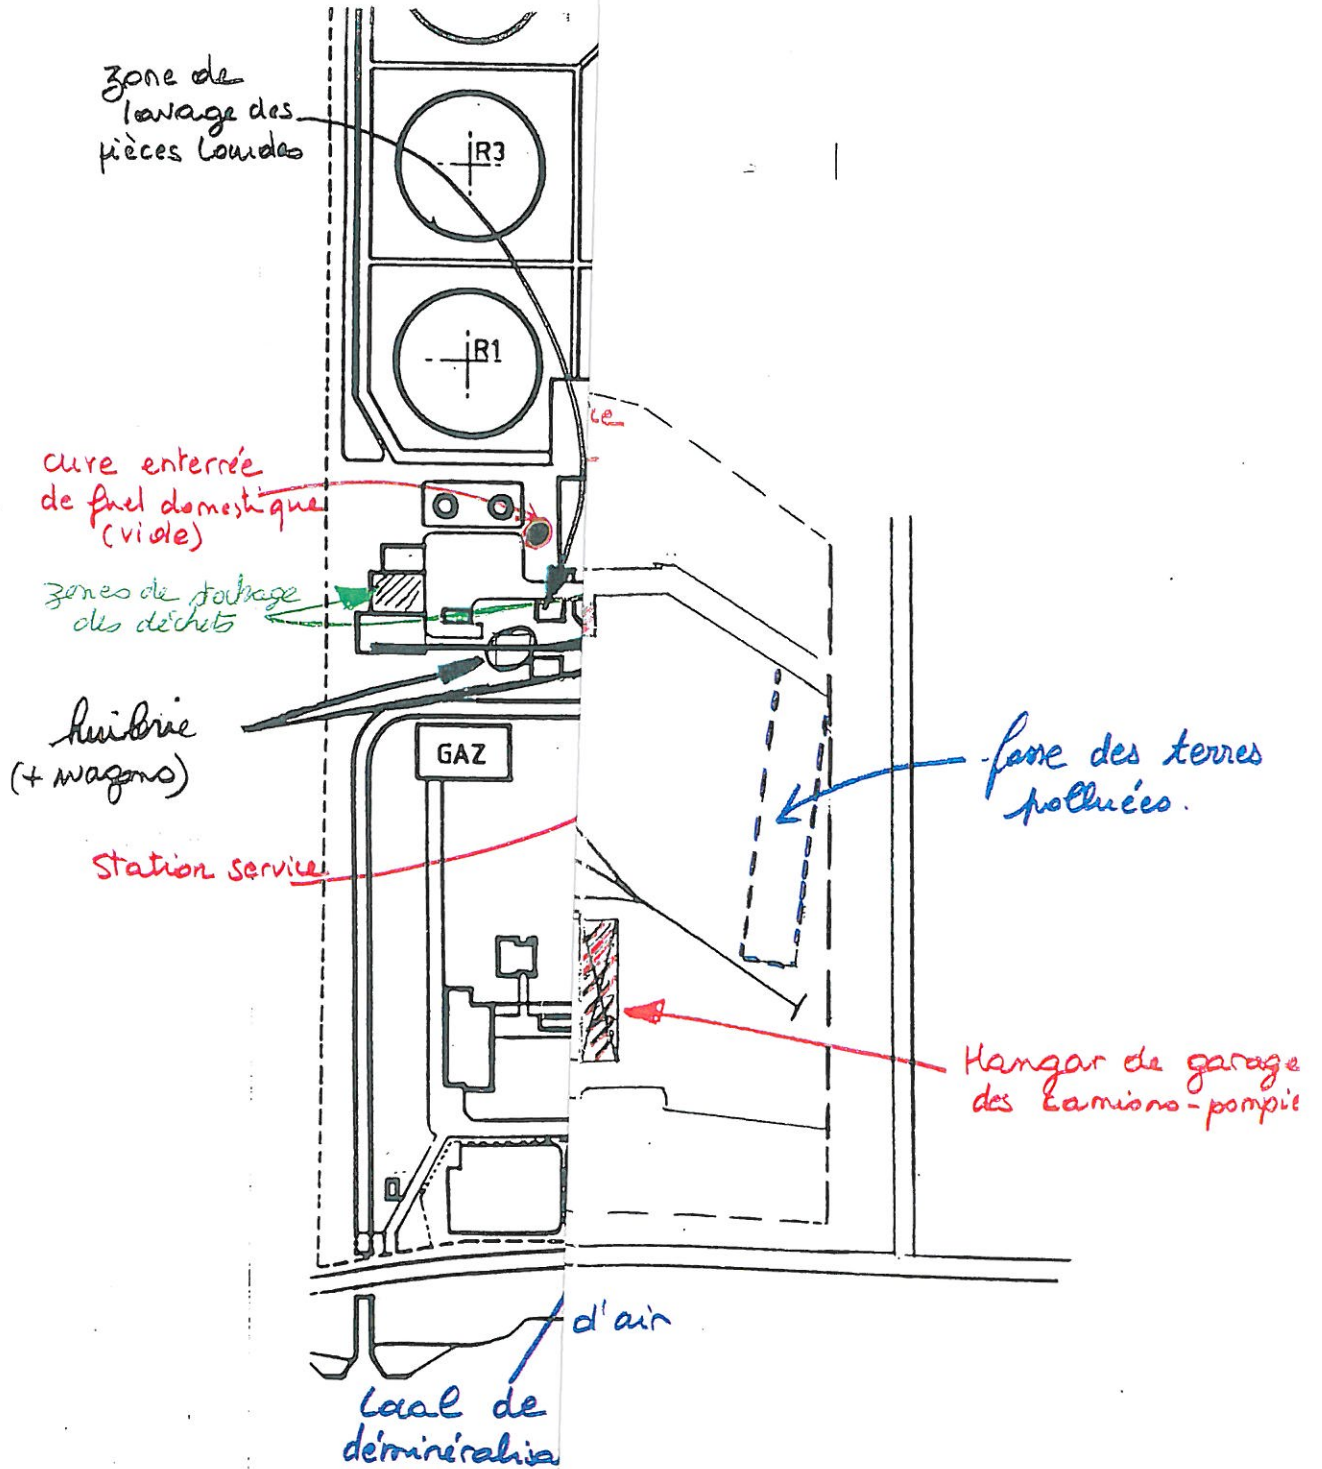 zone de
lavage des
pièces lourdes
R3
R1
ce
cuve enterrée
de fuel domestique
(vide)
zones de stockage
des déchets
huilerie
(+ wagons)
GAZ
fosse des terres
polluées.
Station service
Hangar de garage
des camions-pompie
d'air
Local de
déminéralisa